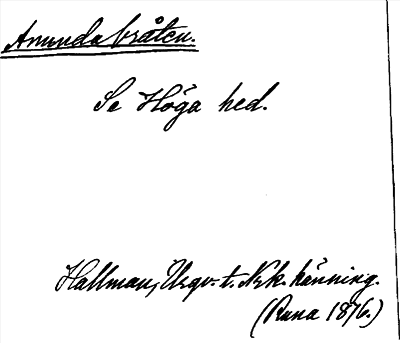 Anundabråten.
Se Höga hed.
Hallman, Urgv. t. Nrk. känning.
(Runa 1876.)